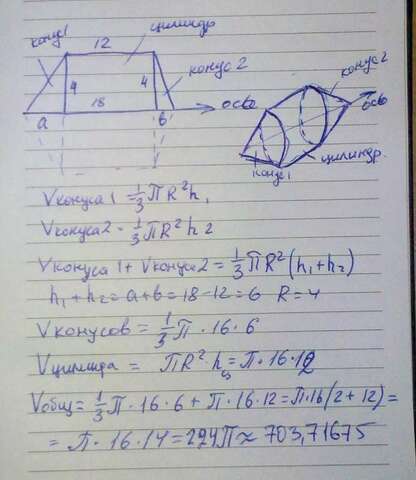 конус1
цилиндр
12
4
4
конус 2
18
ось
a
в
конус 2
ось
цилиндр
конус1
Vконуса1 = 1/3 πR²h₁
Vконуса2 = 1/3 πR²h₂
Vконуса1 + Vконуса2 = 1/3 πR²(h₁+h₂)
h₁+h₂=a+в=18-12=6 R=4
Vконусов = 1/3 π · 16 · 6
Vцилиндра = πR² · hц = π·16·12
Vобщ = 1/3 π · 16 · 6 + π · 16 · 12 = π·16(2+12) =
= π · 16 · 14 = 224π ≈ 703,71675